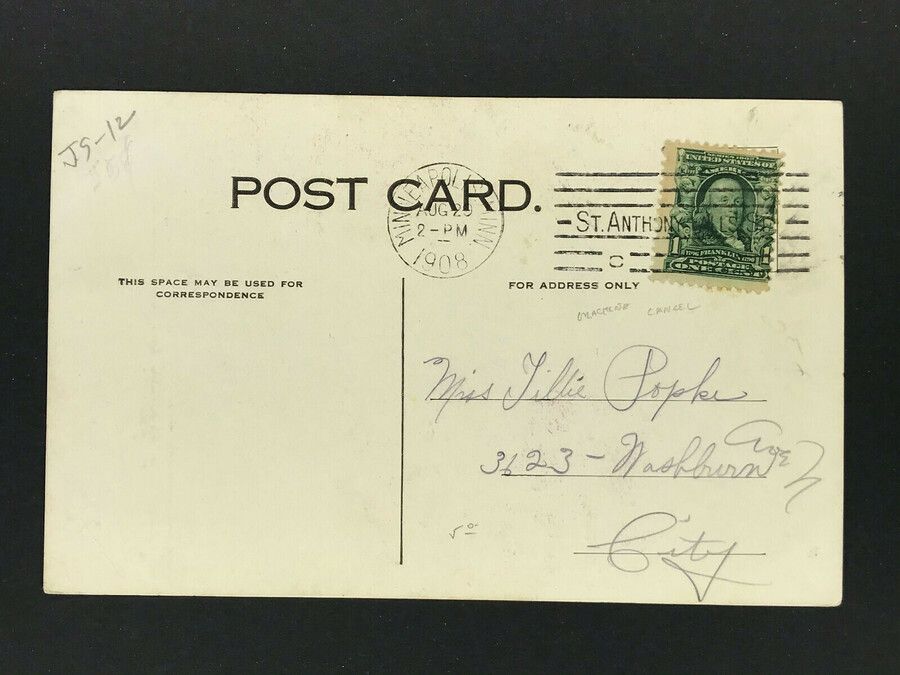 J9-12
POST CARD.
MINNEAPOLIS, MINN
AUG 25
2-PM
1908
ST. ANTHONY
C
UNITED STATES OF
AMERI
FRANKLIN
POSTAGE
ONE CENT
1
THIS SPACE MAY BE USED FOR
CORRESPONDENCE
FOR ADDRESS ONLY
MACHINE CANCEL
Miss Tillie Popke
3623 - Washburn Ave N
City
5 00